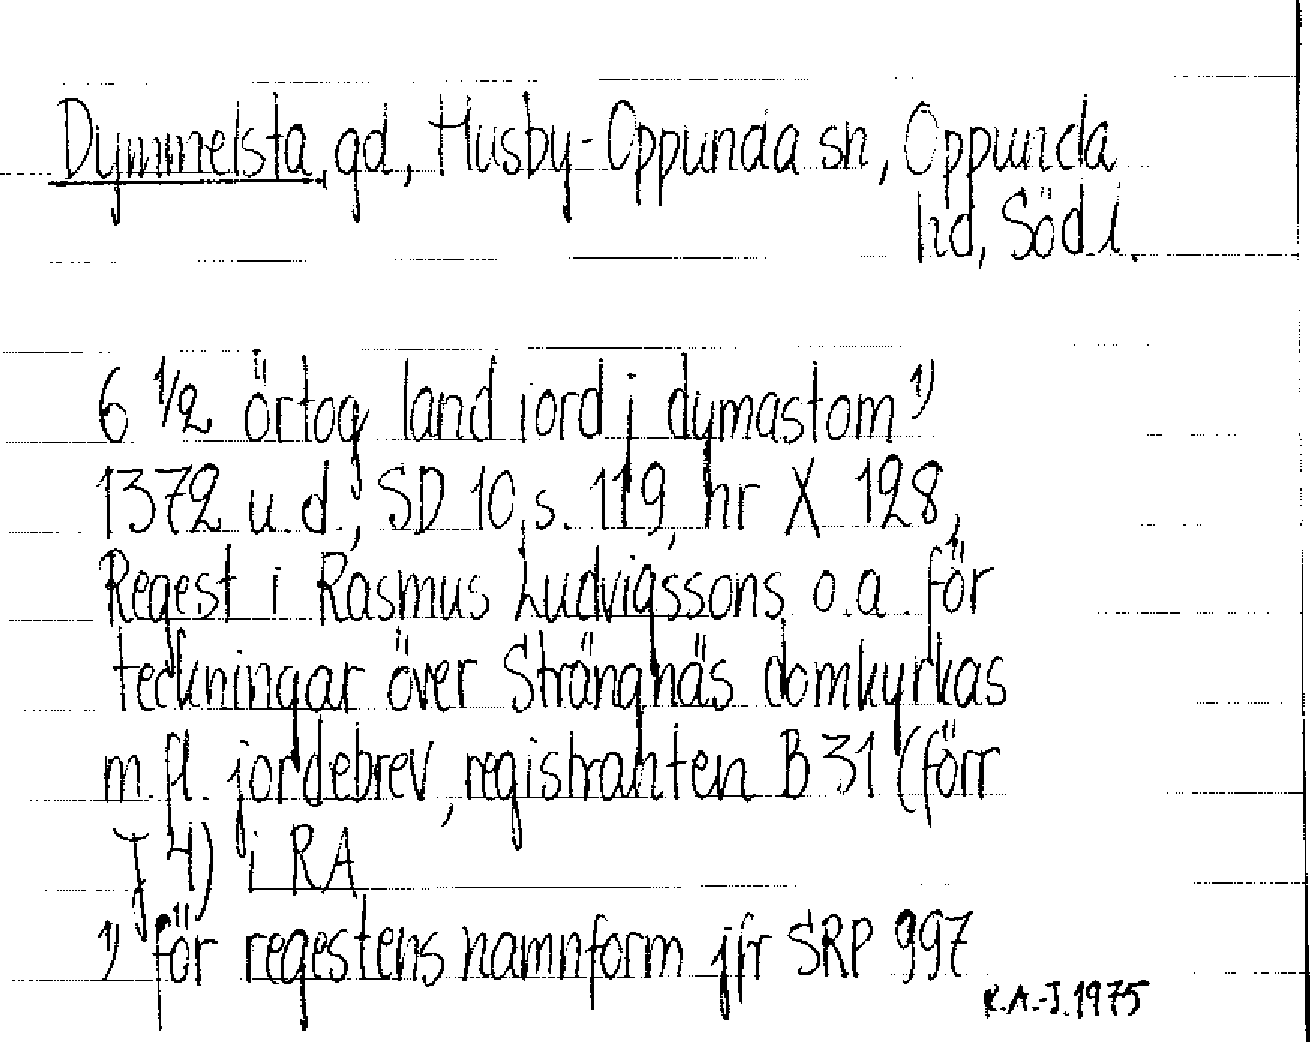 Dymmelsta, gd, Husby-Oppunda sn, Oppunda
hd, Södl.
6 1/2 örtog land jord i dymastom 1)
1372 u.d., SD 10, s. 119, nr X 128,
Regest i Rasmus Ludvigssons o.a. för
teckningar över Strängnäs domkyrkas
m.fl. jordebrev, registranten B 31 (förr
J 4) i RA
1) för regestens namnform jfr SRP 997
R.A.-J. 1975